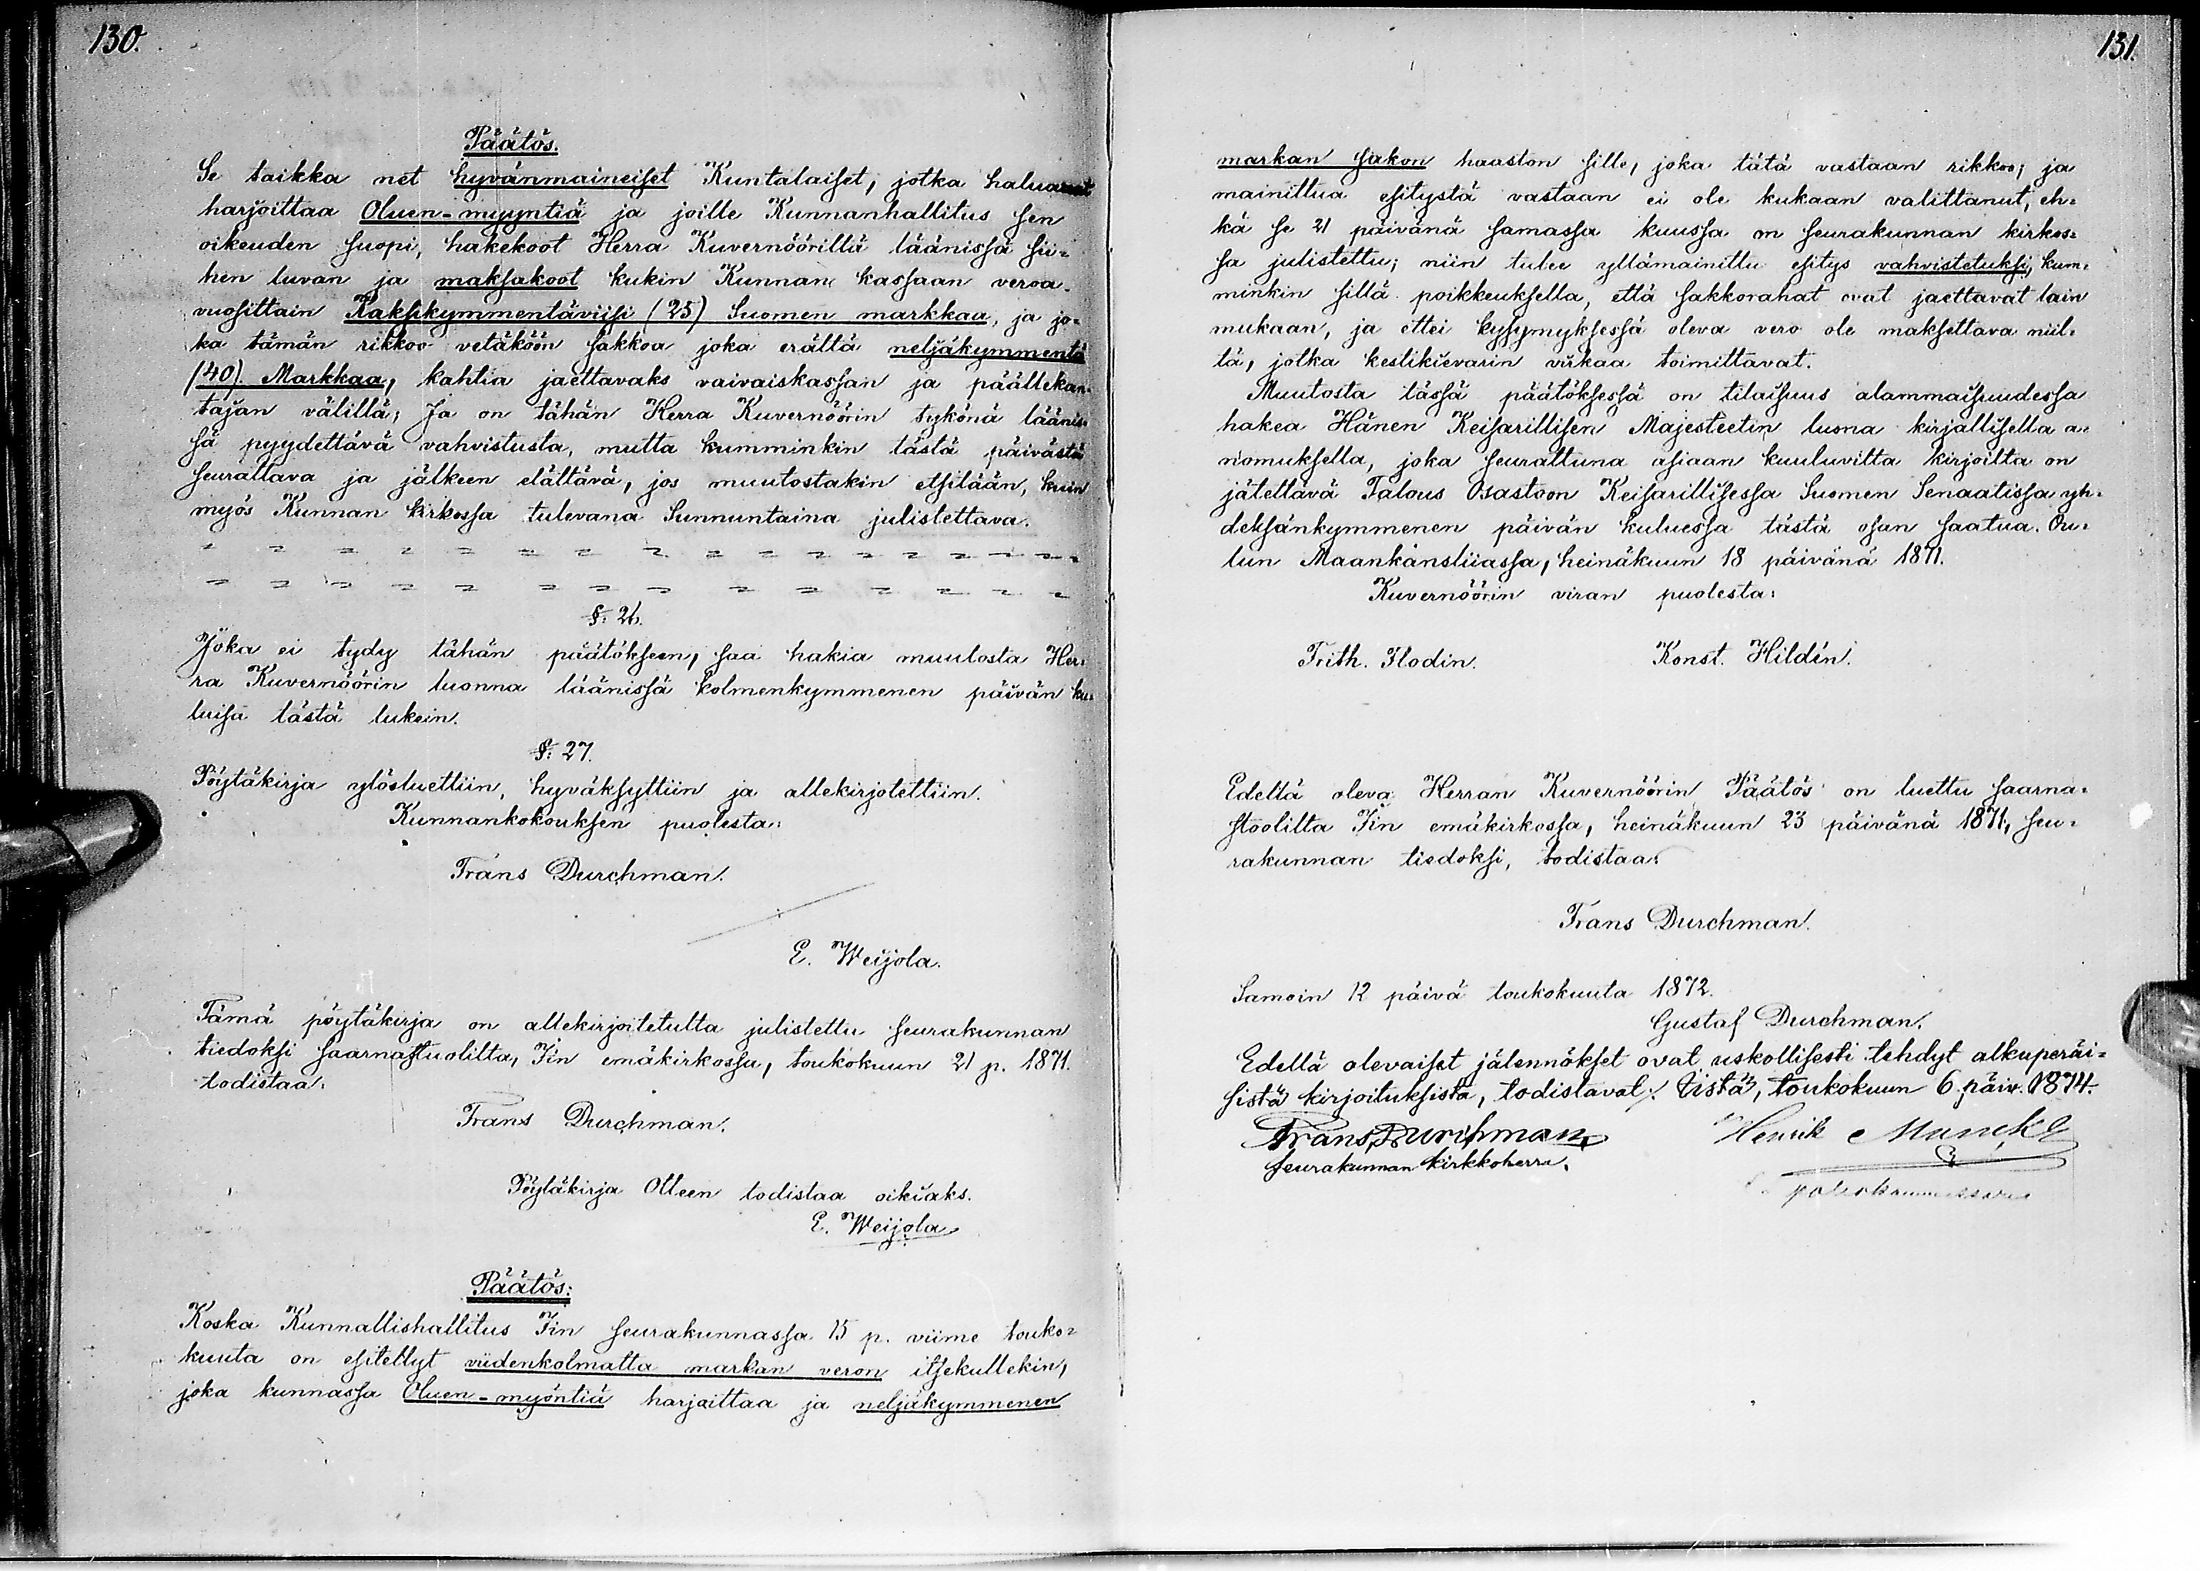 130.
Päätös.
Se taikka net hyvänmaineiset Kuntalaiset, jotka haluavat
harjoittaa Oluen-myyntiä ja joille Kunnanhallitus sen
oikeuden suopi, hakekoot Herra Kuvernöörillä läänissä sii-
hen luvan ja maksakoot kukin Kunnan kassaan veroa
vuosittain Kaksikymmentäviisi (25) Suomen markkaa, ja jo-
ka tämän rikkoo vetäköön sakkoa joka erältä neljäkymmentä
(40). Markkaa, kahtia jaettavaks vaivaiskassan ja päällekan-
tajan välillä; Ja on tähän Herra Kuvernöörin tykönä läänis-
sä pyydettävä vahvistusta, mutta kumminkin tästä päivästä
seurattava ja jälkeen elättävä, jos muutostakin etsilään, kuin
myös Kunnan kirkossa tulevana Sunnuntaina julistettava.
§. 26.
Joka ei tydy tähän päätökseen, saa hakia muutosta Her-
ra Kuvernöörin luonna läänissä kolmenkymmenen päivän ku-
luisa tästä lukein.
§. 27.
Pöytäkirja ylösluettiin, hyväksyttiin ja allekirjotettiin.
Kunnankokouksen puolesta:
Frans Durchman.
E. Weijola.
Tämä pöytäkirja on allekirjoitetulta julistettu seurakunnan
tiedoksi saarnastuolilta, Iin emäkirkossa, toukokuun 21 p. 1871.
todistaa:
Frans Durchman.
Pöytäkirja Otteen todistaa oikiaks.
E. Weijola
Päätös:
Koska Kunnallishallitus Iin seurakunnassa 15 p. viime touko-
kuuta on esitellyt viidenkolmatta markan veron itsekullekin,
joka kunnassa Oluen-myöntiä harjoittaa ja neljäkymmenen
131.
markan sakon haaston sille, joka tätä vastaan rikkoo; ja
mainittua esitystä vastaan ei ole kukaan valittanut, eh-
kä se 21 päivänä samassa kuussa on seurakunnan kirkos-
sa julistettu; niin tulee yllämainittu esitys vahvistetuksi, kum-
minkin sillä poikkeuksella, että sakkorahat ovat jaettavat lain
mukaan, ja ettei kysymyksessä oleva vero ole maksettava niil-
tä, jotka kestikievarin virkaa toimittavat.
Muutosta tässä päätöksessä on tilaisuus alammaisuudessa
hakea Hänen Keisarillisen Majesteetin luona kirjallisella a-
nomuksella, joka seurattuna asiaan kuuluvilta kirjoilta on
jätettävä Talous Osastoon Keisarillisessa Suomen Senaatissa yh-
deksänkymmenen päivän kuluessa tästä osan saatua. Ou-
lun Maankansliiassa, heinäkuun 18 päivänä 1871.
Kuvernöörin viran puolesta:
Frith. Flodin. Konst. Hildén.
Edellä oleva Herran Kuvernöörin Päätös on luettu saarna-
stoolilta Iin emäkirkossa, heinäkuun 23 päivänä 1871, seu-
rakunnan tiedoksi, todistaa:
Frans Durchman.
Samoin 12 päivä toukokuuta 1872.
Gustaf Durchman.
Edellä olevaiset jälennökset ovat uskollisesti tehdyt alkuperäi-
sistä kirjoituksista, todistavat: Iistä, toukokuun 6 päiv. 1874.
Frans Durchman Henrik Munck
seurakunnan kirkkoherra.